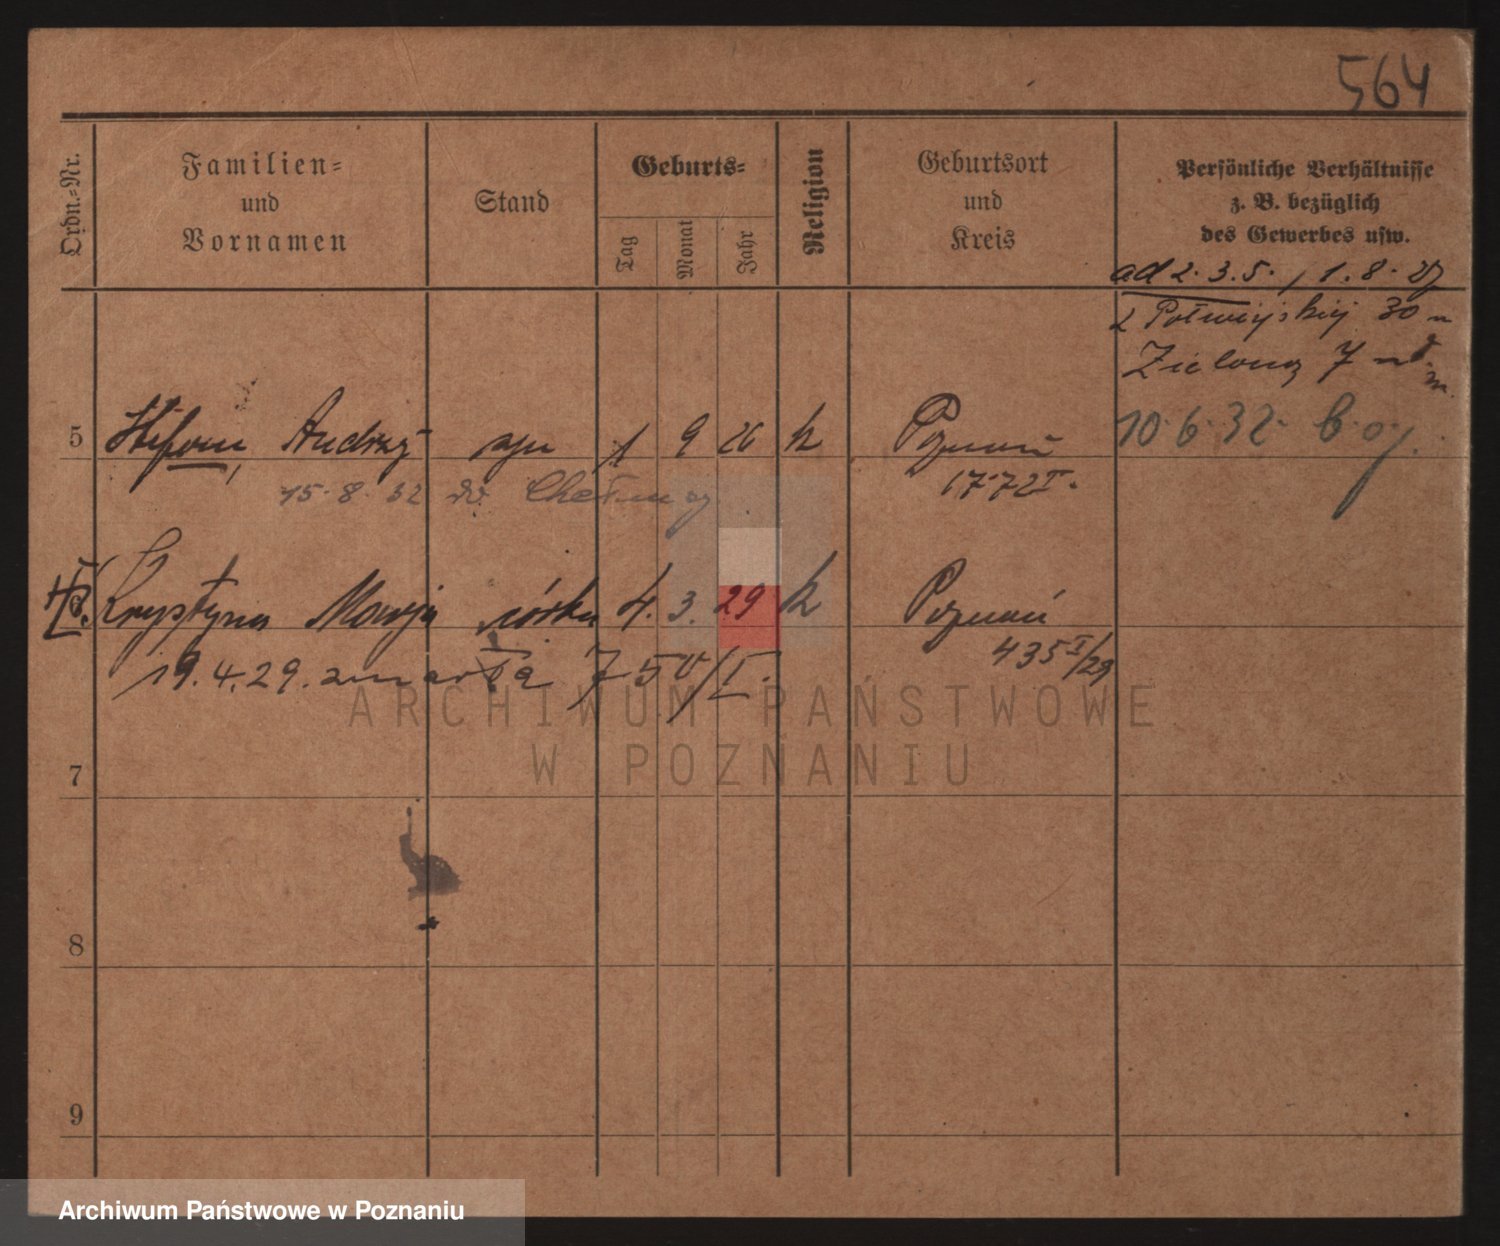 564
Ordn.-Nr.
Familien-
und
Vornamen
Stand
Geburts-
Tag
Monat
Jahr
Religion
Geburtsort
und
Kreis
Persönliche Verhältnisse
z. B. bezüglich
des Gewerbes usw.
ad 2. 3. 5. 1. 8. 27
z Półwiejskiej 30
Zieloną 7
5 Stefan, Andrzej syn 1 9 26 k Poznań 10.6.32
15.8.32 do Chełmży 1772 I.
Krystyna Marja córka 4. 3. 29 k Poznań
19.4.29. zmarła 750/I. 435 I/29
ARCHIWUM PAŃSTWOWE
W POZNANIU
7
8
9
Archiwum Państwowe w Poznaniu